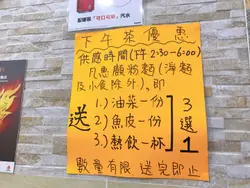 配罐裝「可口可樂」汽水
下午茶優惠
供應時間(下午2:30-6:00)
凡惠顧粉麵(淨麵
及小食除外)、即
送
1.)油菜一份
2.)魚皮一份
3.)熱飲一杯
3
選
1
數量有限 送完即止